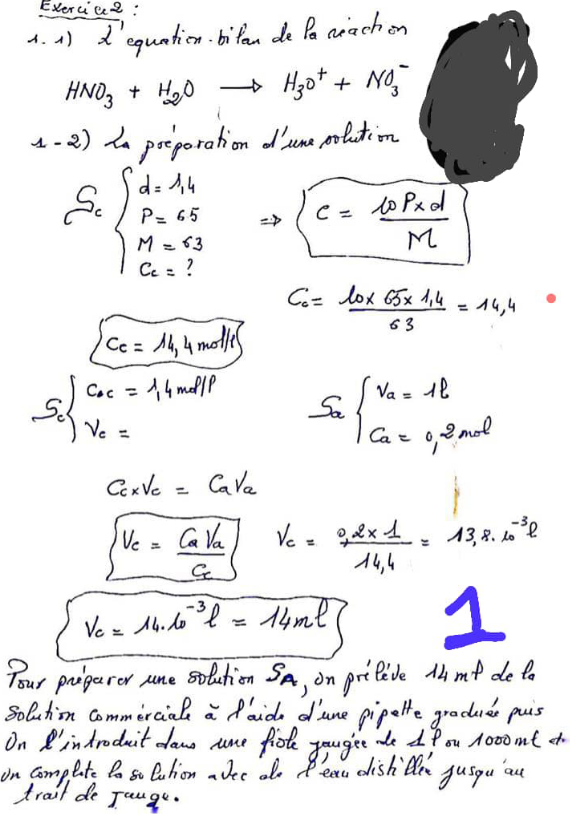 Exercice 2 :
1.1) L'equation-bilan de la réaction
HNO3 + H2O ⟶ H3O+ + NO3-
1-2) La préparation d'une solution
Sc { d = 1,4
P = 65
M = 63
Cc = ?
⇒ C = 10 P x d / M
Cc = 10 x 65 x 1,4 / 63 = 14,4
Cc = 14,4 mol/l
Sc { Coc = 1,4 mol/l
Vc =
Sa { Va = 1l
Ca = 0,2 mol
Cc x Vc = Ca Va
Vc = Ca Va / Cc
Vc = 0,2 x 1 / 14,4 = 13,8.10-3 l
Vc = 14.10-3 l = 14 ml
1
Pour préparer une solution SA, on prélève 14 ml de la
solution commerciale à l'aide d'une pipette graduée puis
on l'introduit dans une fiole jaugée de 1l ou 1000 ml et
on complète la solution avec de l'eau distillée jusqu'au
trait de jauge.